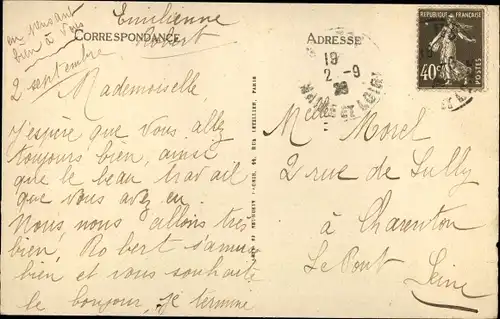 en pensant
bien à vous
Emilienne
Robert
CORRESPONDANCE
2 septembre
Mademoiselle,
J'espère que vous allez
toujours bien, ainsi
que le beau travail
que vous avez en
Nous, nous allons très
bien, Robert s'amuse
bien et vous souhaite
le bonjour, je termine
ADRESSE
19
2 - 9
MAINE ET LOIRE
REPUBLIQUE FRANÇAISE
40c
POSTES
Melle Morel
2 rue de Sully
à Charenton
Le Pont
Seine